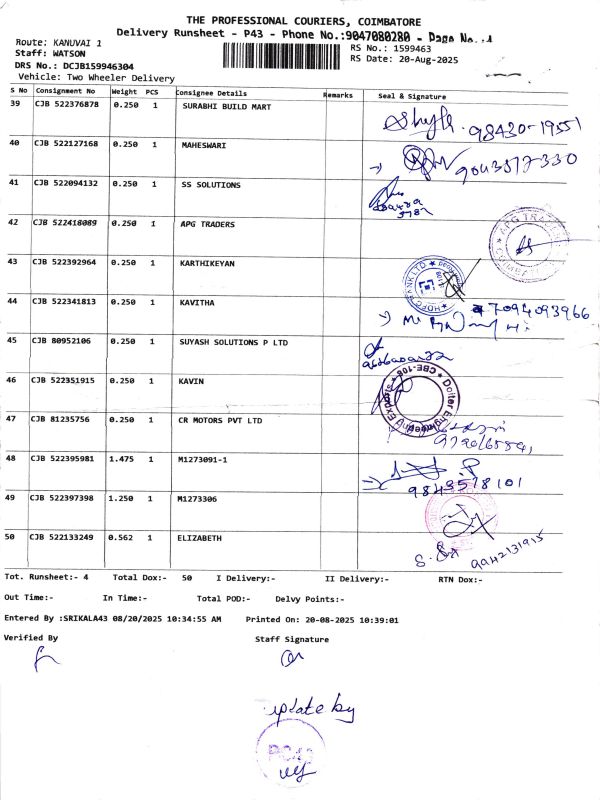 THE PROFESSIONAL COURIERS, COIMBATORE
Delivery Runsheet - P43 - Phone No.:9047080280 - Page No.
Route: KANUVAI 1
RS No.: 1599463
Staff: WATSON
RS Date: 20-Aug-2025
DRS No.: DCJB159946304
Vehicle: Two Wheeler Delivery
S No Consignment No Weight PCS Consignee Details Remarks Seal & Signature
39 CJB 522376878 0.250 1 SURABHI BUILD MART
98430-19551
40 CJB 522127168 0.250 1 MAHESWARI
9043517330
41 CJB 522094132 0.250 1 SS SOLUTIONS
42 CJB 522418089 0.250 1 APG TRADERS
APG TRADERS
43 CJB 522392964 0.250 1 KARTHIKEYAN
HDFC BANK LTD
44 CJB 522341813 0.250 1 KAVITHA
7094093966
45 CJB 80952106 0.250 1 SUYASH SOLUTIONS P LTD
46 CJB 522351915 0.250 1 KAVIN
CBE-108
47 CJB 81235756 0.250 1 CR MOTORS PVT LTD
48 CJB 522395981 1.475 1 M1273091-1
9843578101
49 CJB 522397398 1.250 1 M1273306
50 CJB 522133249 0.562 1 ELIZABETH
9942131915
Tot. Runsheet:- 4 Total Dox:- 50 I Delivery:- II Delivery:- RTN Dox:-
Out Time:- In Time:- Total POD:- Delvy Points:-
Entered By :SRIKALA43 08/20/2025 10:34:55 AM Printed On: 20-08-2025 10:39:01
Verified By Staff Signature
update by